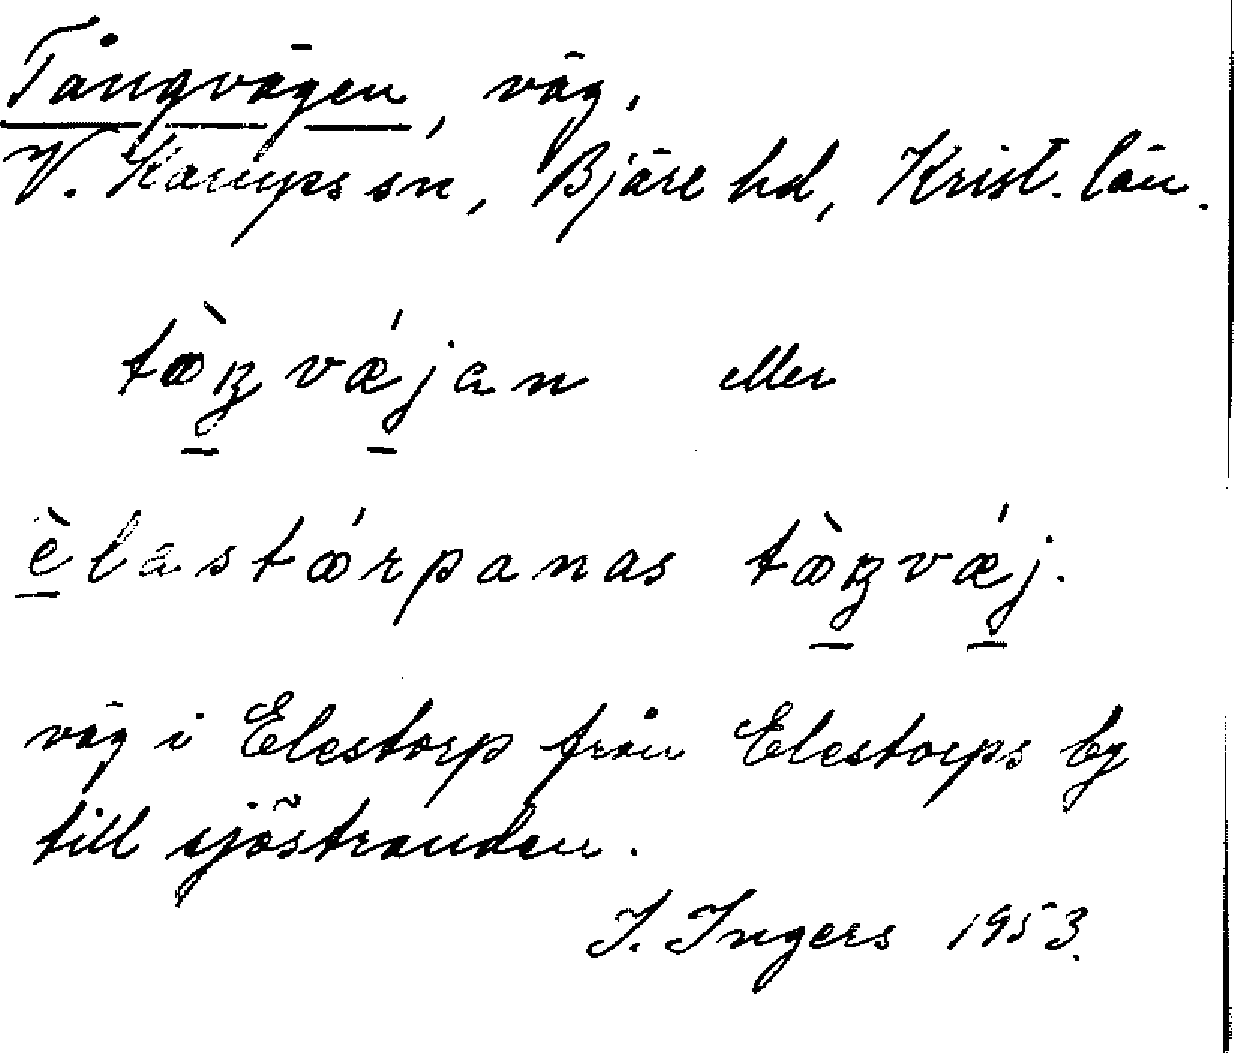 Tångvägen, väg,
V. Karups sn, Bjäre hd, Krist. län.
tæ̀ŋvǽjan eller
èlastǿrpanas tæ̀ŋvǽj.
väg i Elestorp från Elestorps by
till sjöstranden.
I. Ingers 1953.